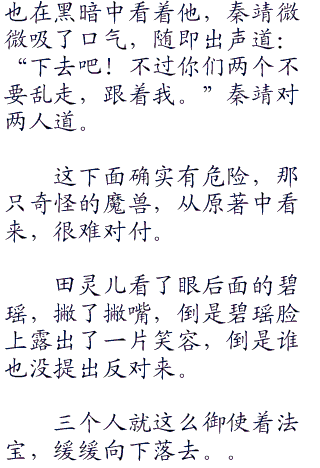 也在黑暗中看着他，秦靖微
微吸了口气，随即出声道：
“下去吧！不过你们两个不
要乱走，跟着我。”秦靖对
两人道。
这下面确实有危险，那
只奇怪的魔兽，从原著中看
来，很难对付。
田灵儿看了眼后面的碧
瑶，撇了撇嘴，倒是碧瑶脸
上露出了一片笑容，倒是谁
也没提出反对来。
三个人就这么御使着法
宝，缓缓向下落去。。